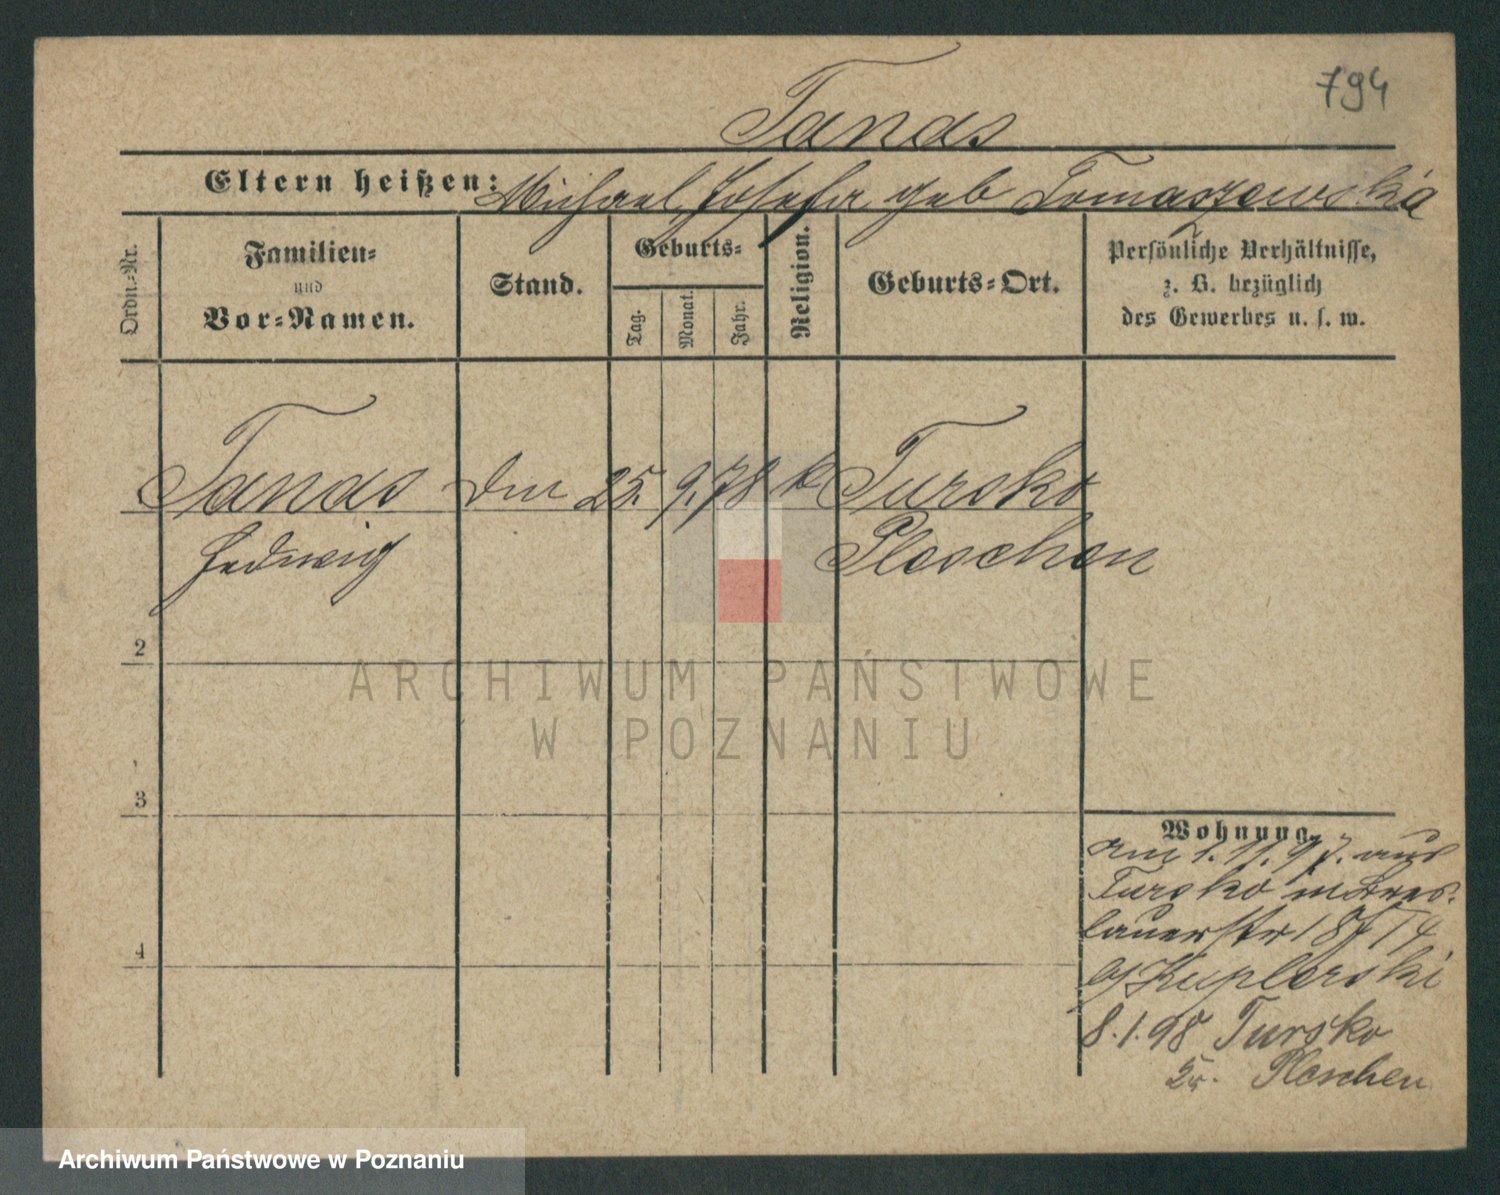 794
Tanas
Eltern heißen: Michael, Josefa geb Tomaszewska
Ordn.-Nr.
Familien-
und
Vor-Namen.
Stand.
Geburts-
Tag.
Monat.
Jahr.
Religion.
Geburts-Ort.
Persönliche Verhältnisse,
z. B. bezüglich
des Gewerbes u. s. w.
Tanas 25. 9. 78 k Tursko
Hedwig Pleschen
2
3
4
Wohnung
am 1. 11. 97. aus
Tursko in Bres-
lauerstr 18
8.1.98 Tursko
Kr. Pleschen
ARCHIWUM PAŃSTWOWE
W POZNANIU
Archiwum Państwowe w Poznaniu